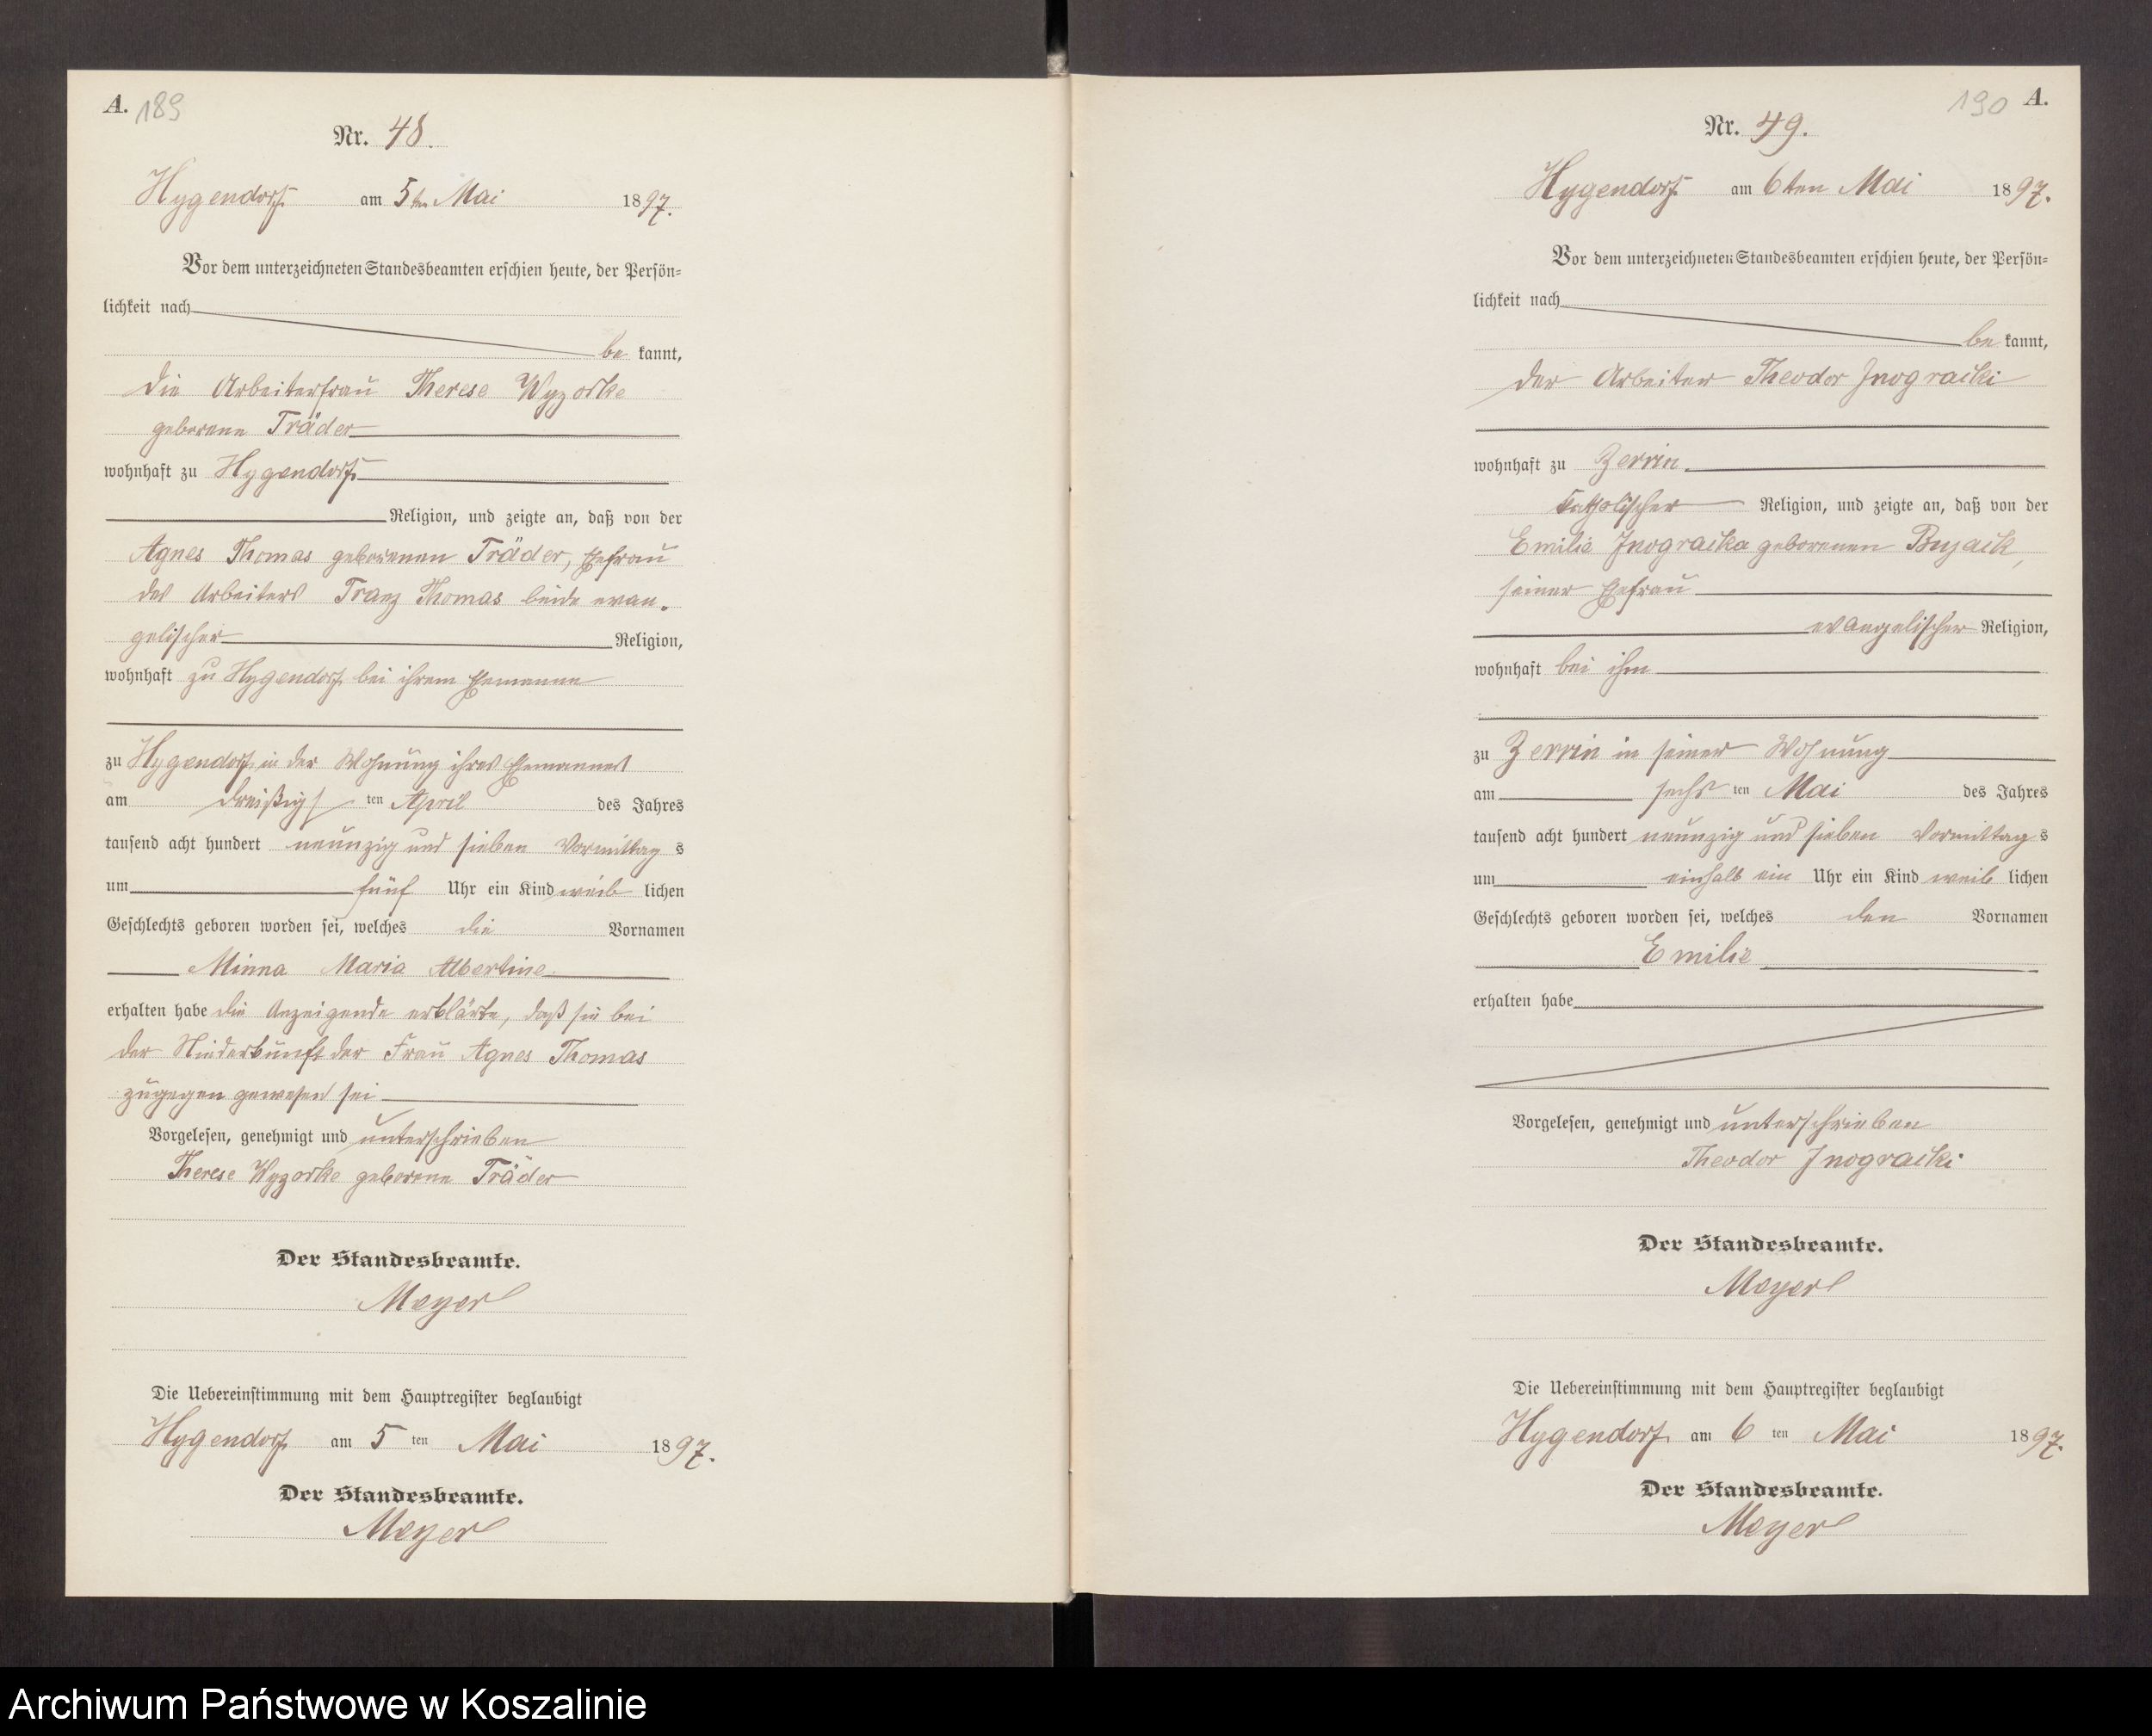 A. 189
Nr. 48.
Hygendorf am 5ten Mai 1897.
Vor dem unterzeichneten Standesbeamten erschien heute, der Persön-
lichkeit nach
be kannt,
die Arbeiterfrau Therese Wyzorke
geborene Träder
wohnhaft zu Hygendorf
Religion, und zeigte an, daß von der
Agnes Thomas geborenen Träder, Ehefrau
des Arbeiters Franz Thomas beide evan-
gelischer Religion,
wohnhaft zu Hygendorf bei ihrem Ehemanne
zu Hygendorf in der Wohnung ihres Ehemannes
am dreißigsten April des Jahres
tausend acht hundert neunzig und sieben Vormittags
um fünf Uhr ein Kind weiblichen
Geschlechts geboren worden sei, welches die Vornamen
Minna Maria Albertine
erhalten habe die Anzeigende erklärte, daß sie bei
der Niederkunft der Frau Agnes Thomas
zugegen gewesen sei
Vorgelesen, genehmigt und unterschrieben
Therese Wyzorke geborene Träder
Der Standesbeamte.
Meyer
Die Uebereinstimmung mit dem Hauptregister beglaubigt
Hygendorf am 5 ten Mai 1897.
Der Standesbeamte.
Meyer
190 A.
Nr. 49.
Hygendorf am 6ten Mai 1897.
Vor dem unterzeichneten Standesbeamten erschien heute, der Persön-
lichkeit nach
be kannt,
der Arbeiter Theodor
wohnhaft zu Zerrin
katholischer Religion, und zeigte an, daß von der
Emilie geborenen
seiner Ehefrau
evangelischer Religion,
wohnhaft bei ihm
zu Zerrin in seiner Wohnung
am sechsten Mai des Jahres
tausend acht hundert neunzig und sieben Vormittags
um einhalb ein Uhr ein Kind weiblichen
Geschlechts geboren worden sei, welches den Vornamen
Emilie
erhalten habe
Vorgelesen, genehmigt und unterschrieben
Theodor
Der Standesbeamte.
Meyer
Die Uebereinstimmung mit dem Hauptregister beglaubigt
Hygendorf am 6 ten Mai 1897.
Der Standesbeamte.
Meyer
Archiwum Państwowe w Koszalinie